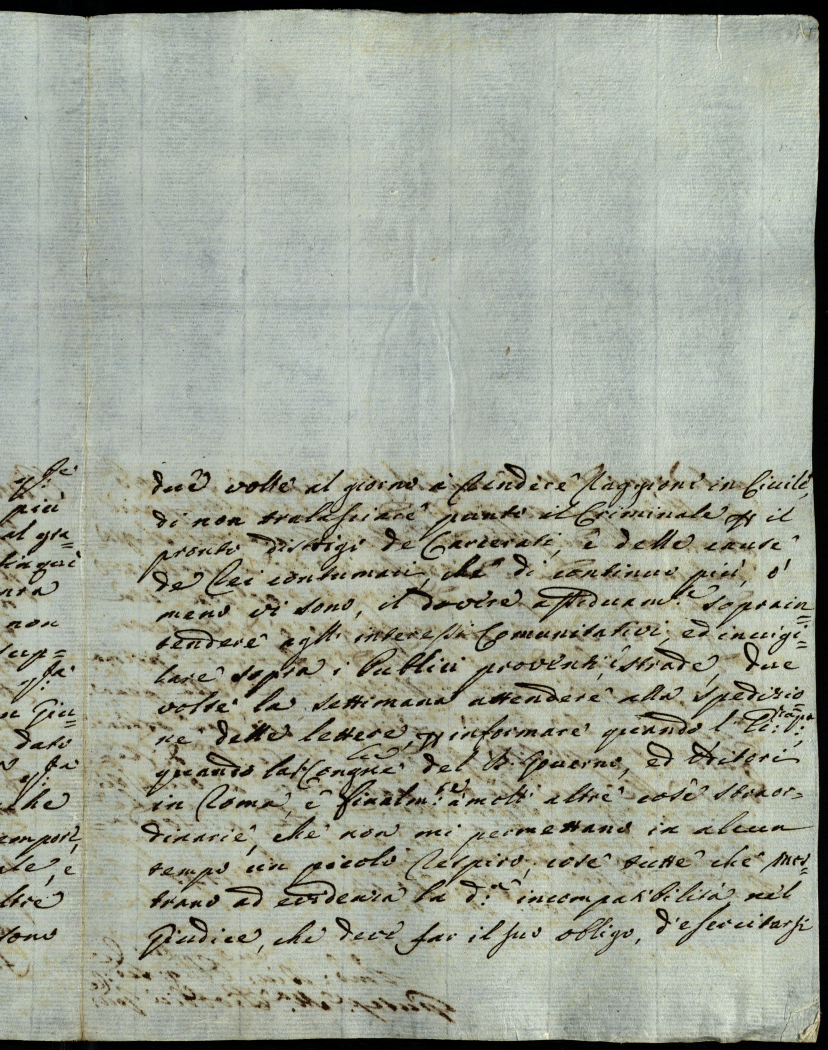 q.sta
più
al gra=
nra
non
sup=
q.sta
Giu=
dato
q.sta
che
tempori,
le, è
ltre
sono
due volte al giorno à Rendere Raggioni in Civile,
di non tralasciare punto il Criminale p il
pronto disbrigo de Carcerati, è delle cause
de Rei contumaci, che di continuo più, ò
meno vi sono, il dovere assiduam.te soprain=
tendere agli interessi Comunitativi, ed invigi=
lare sopra i Publici proventi, è strade, due
volte la settimana attendere alla spedizio=
ne delle lettere, p informare quando l'
quando la Congne del B. Governo, ed Uditori
in Roma, è finalm.te à molte altre cose straor=
dinarie, che non mi permettano in alcun
tempo un piccolo Respiro, cose tutte che mos=
trano ad evidenza la d.a incompatibilità nel
Giudice, che deve far il suo obligo, d'esercitarsi